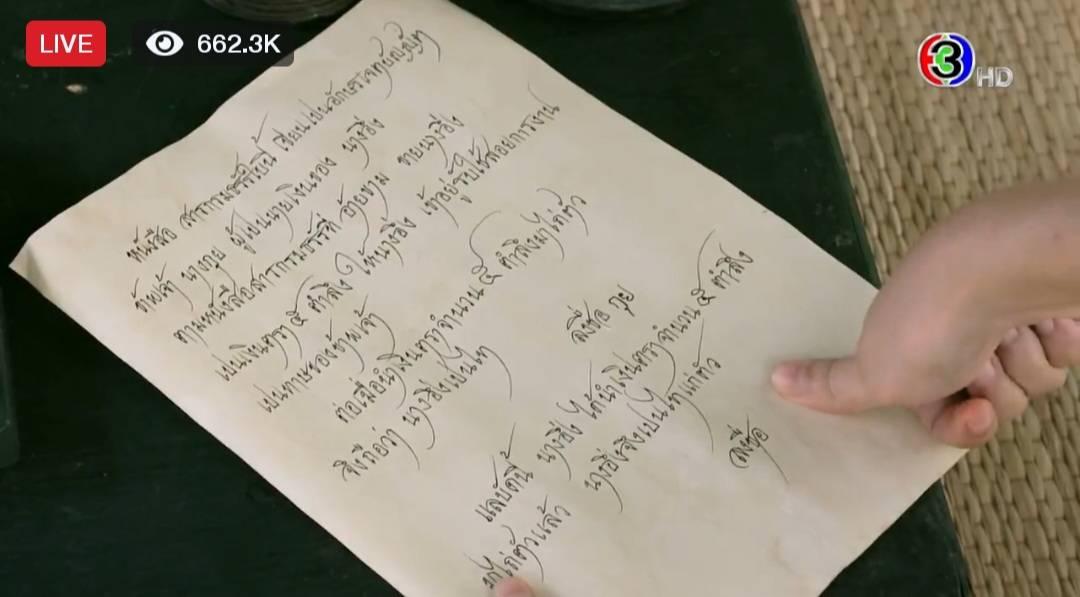 LIVE
662.3K
3 HD
หนังสือ สารกรมธรรม์นี้ เขียนเปนลักษร
ข้าพเจ้า นางกุย ผู้เปนนายเงินของ นางอึ่ง
ตามหนังสือสารกรมธรรม์ที่ อ้ายขาม ขายนางอึ่ง
เปนเงินตรา ๕ ตำลึง ให้นางอึ่ง เข้าอยู่รับใช้สอยการงาน
เปนทาษของข้าพเจ้า
ต่อเมื่อนำเงินตราจำนวน ๕ ตำลึงมาไถ่ตัว
จึงถือว่า นางอึ่งเปนไท
ลงชื่อ กุย
แลบัดนี้ นางอึ่ง ได้นำเงินตราจำนวน ๕ ตำลึง
มาไถ่ตัวแล้ว นางอึ่งจึงเปนไทแก่ตัว
ลงชื่อ